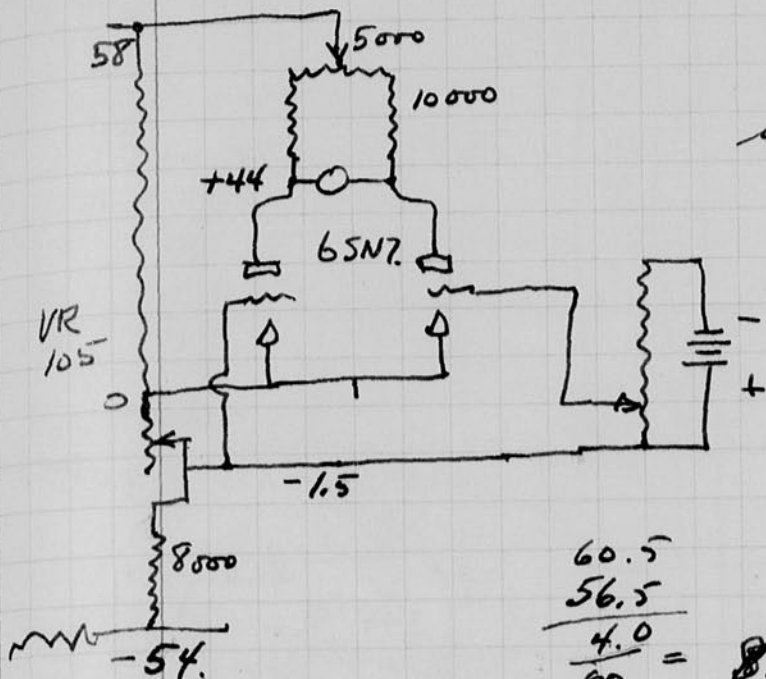 58
5000
10000
+44
6SN7.
VR
105
-
+
0
-1.5
8000
60.5
56.5
4.0
=
-54.